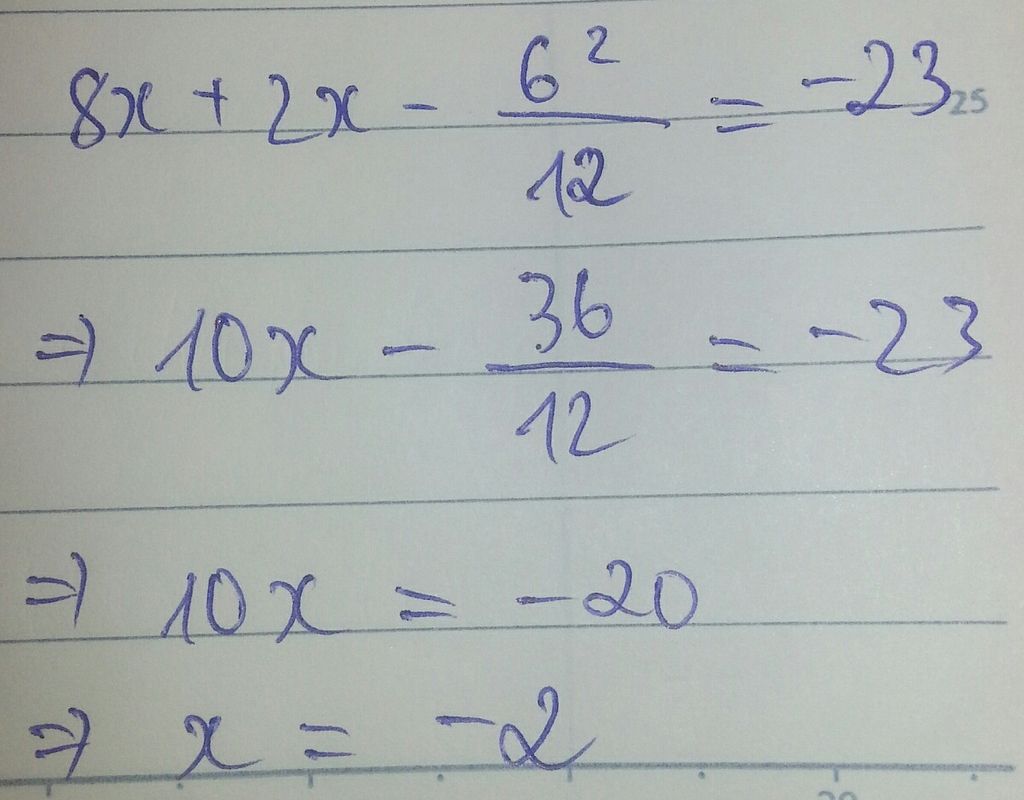 8x + 2x - 6²/12 = -23
25
⇒ 10x - 36/12 = -23
⇒ 10x = -20
⇒ x = -2